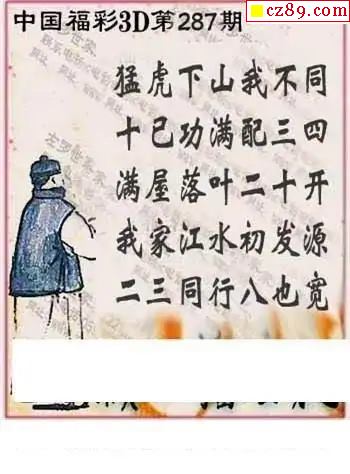 cz89.com
中国福彩3D第287期
猛虎下山我不同
十已功满配三四
满屋落叶二十开
我家江水初发源
二三同行八也宽